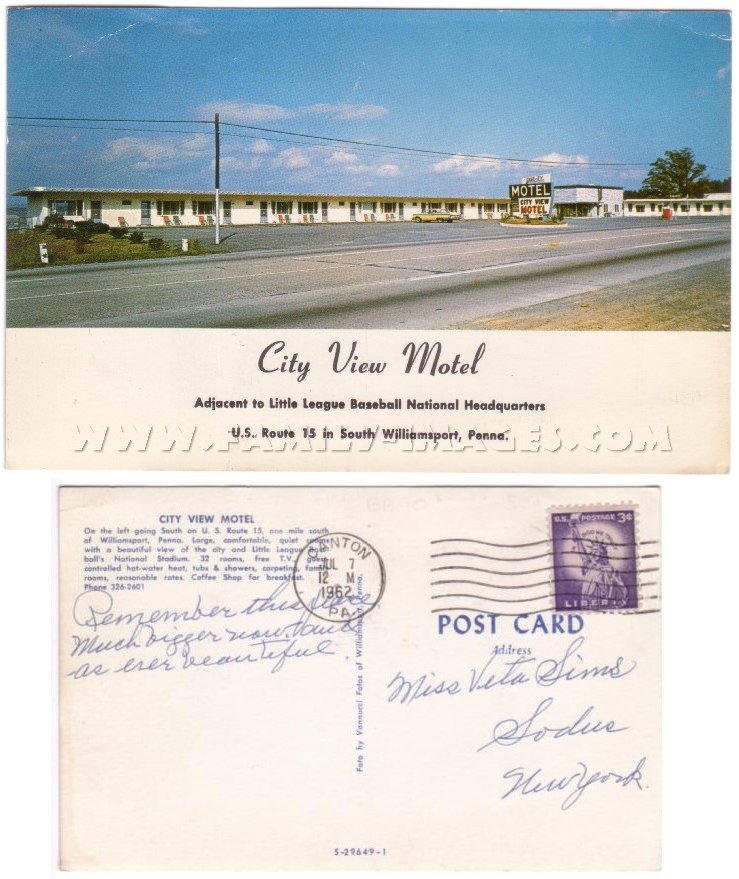 MOTEL
CITY VIEW
MOTEL
City View Motel
Adjacent to Little League Baseball National Headquarters
U.S. Route 15 in South Williamsport, Penna.
WWW.FAMILY-IMAGES.COM
CITY VIEW MOTEL
On the left going South on U. S. Route 15, one mile south
of Williamsport, Penna. Large, comfortable, quiet rooms
with a beautiful view of the city and Little League Base-
ball's National Stadium. 32 rooms, free T.V., guest
controlled hot-water heat, tubs & showers, carpeting, family
rooms, reasonable rates. Coffee Shop for breakfast.
Phone 326-2601
Remember this place
Much bigger now. and
as ever beautiful.
Foto by Vannucci Fotos of Williamsport, Penna.
S-29649-1
CANTON
JUL 7
12 M
1962
PA.
U.S. POSTAGE 3¢
IN GOD WE TRUST
LIBERTY
POST CARD
Address
Miss Veta Sims
Sodus
New York.